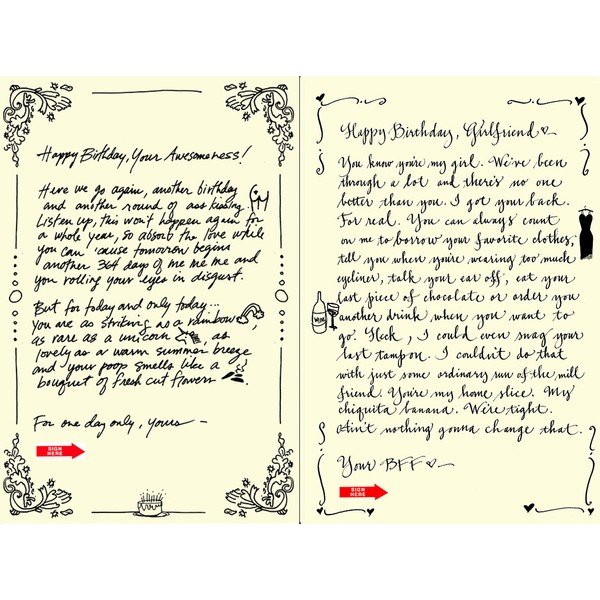 Happy Birthday, Your Awesomeness!
Here we go again, another birthday
and another round of ass kissing.
Listen up, this won't happen again for
a whole year, so absorb the love while
you can 'cause tomorrow begins
another 364 days of me me me and
you rolling your eyes in disgust.
But for today and only today...
you are as striking as a rainbow,
as rare as a unicorn, as
lovely as a warm summer breeze
and your poop smells like a
bouquet of fresh cut flowers.
For one day only, yours –
SIGN
HERE
Happy Birthday, Girlfriend –
You know you're my girl. We've been
through a lot and there's no one
better than you. I got your back.
For real. You can always count
on me to borrow your favorite clothes,
tell you when you're wearing too much
eyeliner, talk your ear off, eat your
last piece of chocolate or order you
another drink when you want to
go. Heck, I could even snag your
last tampon. I couldn't do that
with just some ordinary run of the mill
friend. You're my home slice. My
chiquita banana. We're tight.
Ain't nothing gonna change that.
Your BFF –
SIGN
HERE